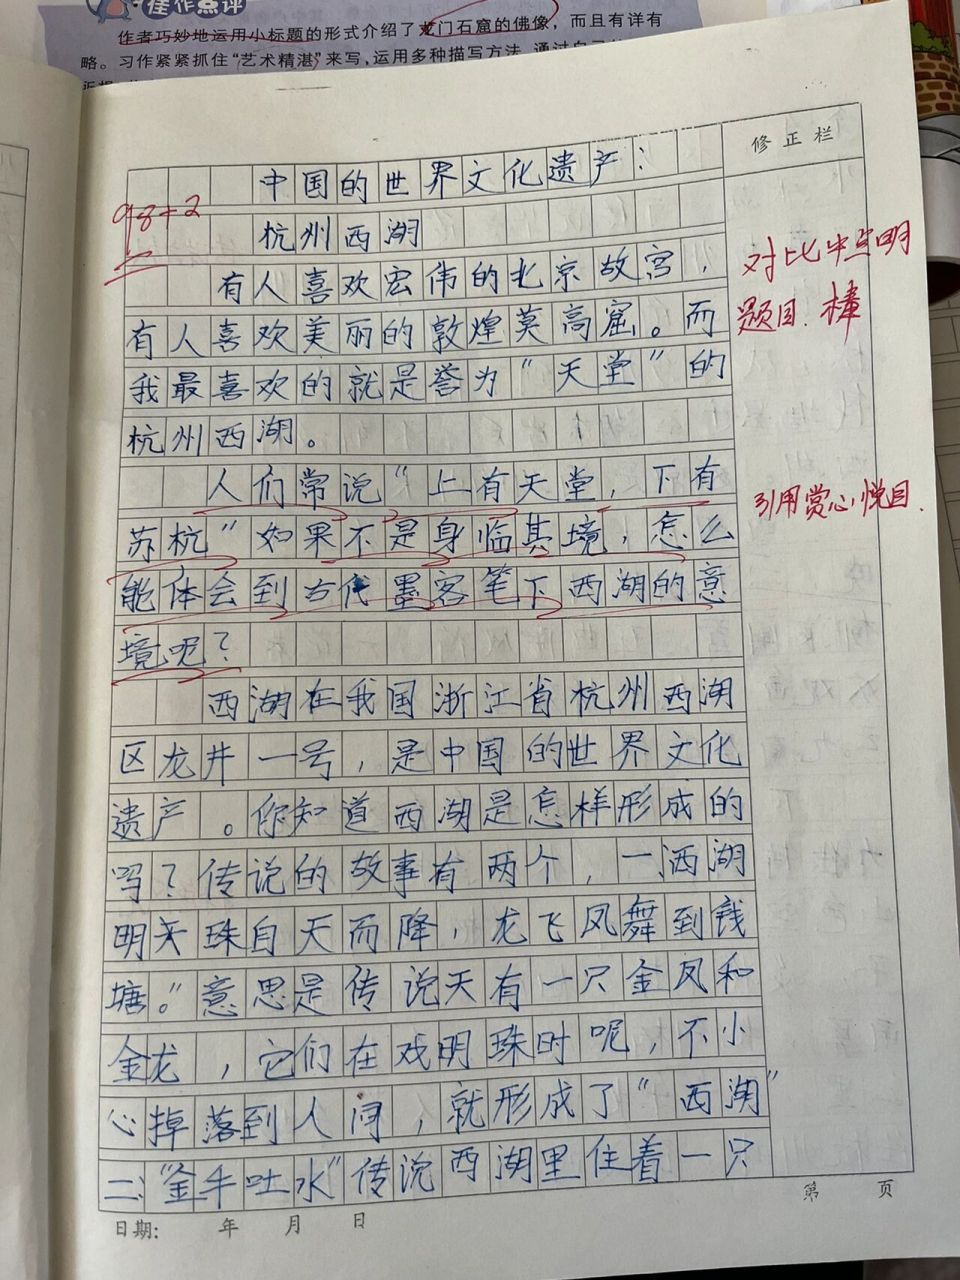 佳作点评
作者巧妙地运用小标题的形式介绍了龙门石窟的佛像，而且有详有
略。习作紧紧抓住“艺术精湛”来写，运用多种描写方法，通过
修正栏
中国的世界文化遗产：
98+2
杭州西湖
有人喜欢宏伟的北京故宫，
对比中点明
有人喜欢美丽的敦煌莫高窟。而
题目.棒
我最喜欢的就是誉为“天堂”的
杭州西湖。
人们常说“上有天堂，下有
引用赏心悦目.
苏杭”如果不是身临其境，怎么
能体会到古代墨客笔下西湖的意
境呢？
西湖在我国浙江省杭州西湖
区龙井一号，是中国的世界文化
遗产。你知道西湖是怎样形成的
吗？传说的故事有两个，一西湖
明天珠自天而降，龙飞凤舞到钱
塘。”意思是传说天有一只金凤和
金龙，它们在戏明珠时呢，不小
心掉落到人间，就形成了“西湖”
二：“金牛吐水”传说西湖里住着一只
第 页
日期： 年 月 日